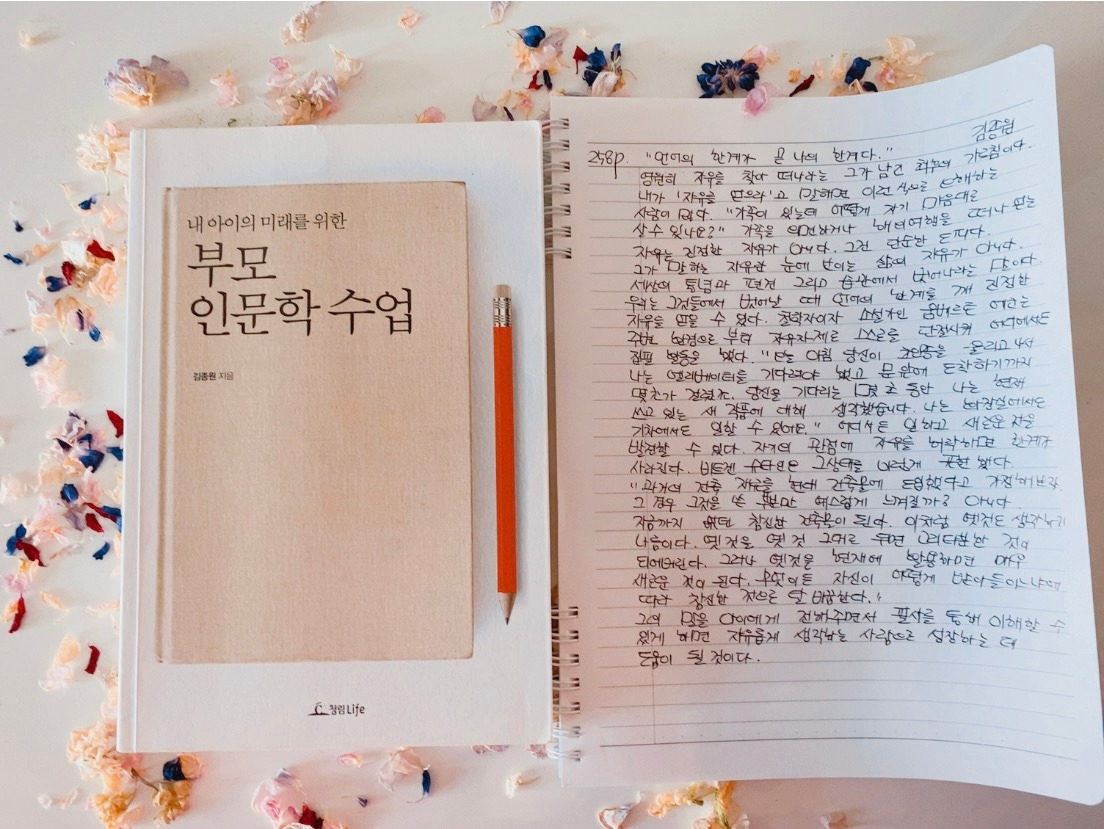 내 아이의 미래를 위한
부모
인문학 수업
김종원 지음
청림Life
김종원
258p. "언어의 한계가 곧 나의 한계다."
영원히 자유를 찾아 떠나라는 그가 남긴 최후의 가르침이다.
내가 '자유를 얻으라'고 말하면 이런 식으로 오해하는
사람이 많다. "가족이 있는데 어떻게 자기 마음대로
살 수 있나요?" 가족을 외면하거나 해외여행을 떠나 얻는
자유는 진정한 자유가 아니다. 그건 단순한 도피다.
그가 말하는 자유란 눈에 보이는 삶의 자유가 아니다.
세상의 통념과 편견 그리고 습관에서 벗어나라는 말이다.
우리는 그것들에서 벗어날 때 언어의 한계를 깨 진정한
자유를 얻을 수 있다. 철학자이자 소설가인 움베르토 에코는
주변 환경으로부터 자유자재로 스스로를 단절시켜 어디에서든
집필 활동을 했다. "오늘 아침 당신이 초인종을 울리고 나서
나는 엘리베이터를 기다려야 했고 문 앞에 도착하기까지
몇 초가 걸렸죠. 당신을 기다리는 몇 초 동안 나는 현재
쓰고 있는 새 작품에 대해 생각했습니다. 나는 화장실에서도
기차에서도 일할 수 있어요." 어디서든 일하고 새로운 것을
발견할 수 있다. 자기의 관점에 자유를 허락하면 한계가
사라진다. 비트겐슈타인은 그 상태를 이렇게 표현했다.
"과거의 건축 재료를 현대 건축물에 도입했다고 가정해보라.
그 경우 그것을 쓴 부분만 예스럽게 느껴질까? 아니다.
지금까지 없던 참신한 건축물이 된다. 이처럼 옛것도 생각하기
나름이다. 옛것을 옛 것 그대로 두면 고리타분한 것이
되어버린다. 그러나 옛것을 현재에 활용하면 매우
새로운 것이 된다. 무엇이든 자신이 어떻게 받아들이느냐에
따라 참신한 것으로 탈바꿈한다."
그의 말을 아이에게 전해주면서 필사를 통해 이해할 수
있게 하면 자유롭게 생각하는 사람으로 성장하는 데
도움이 될 것이다.